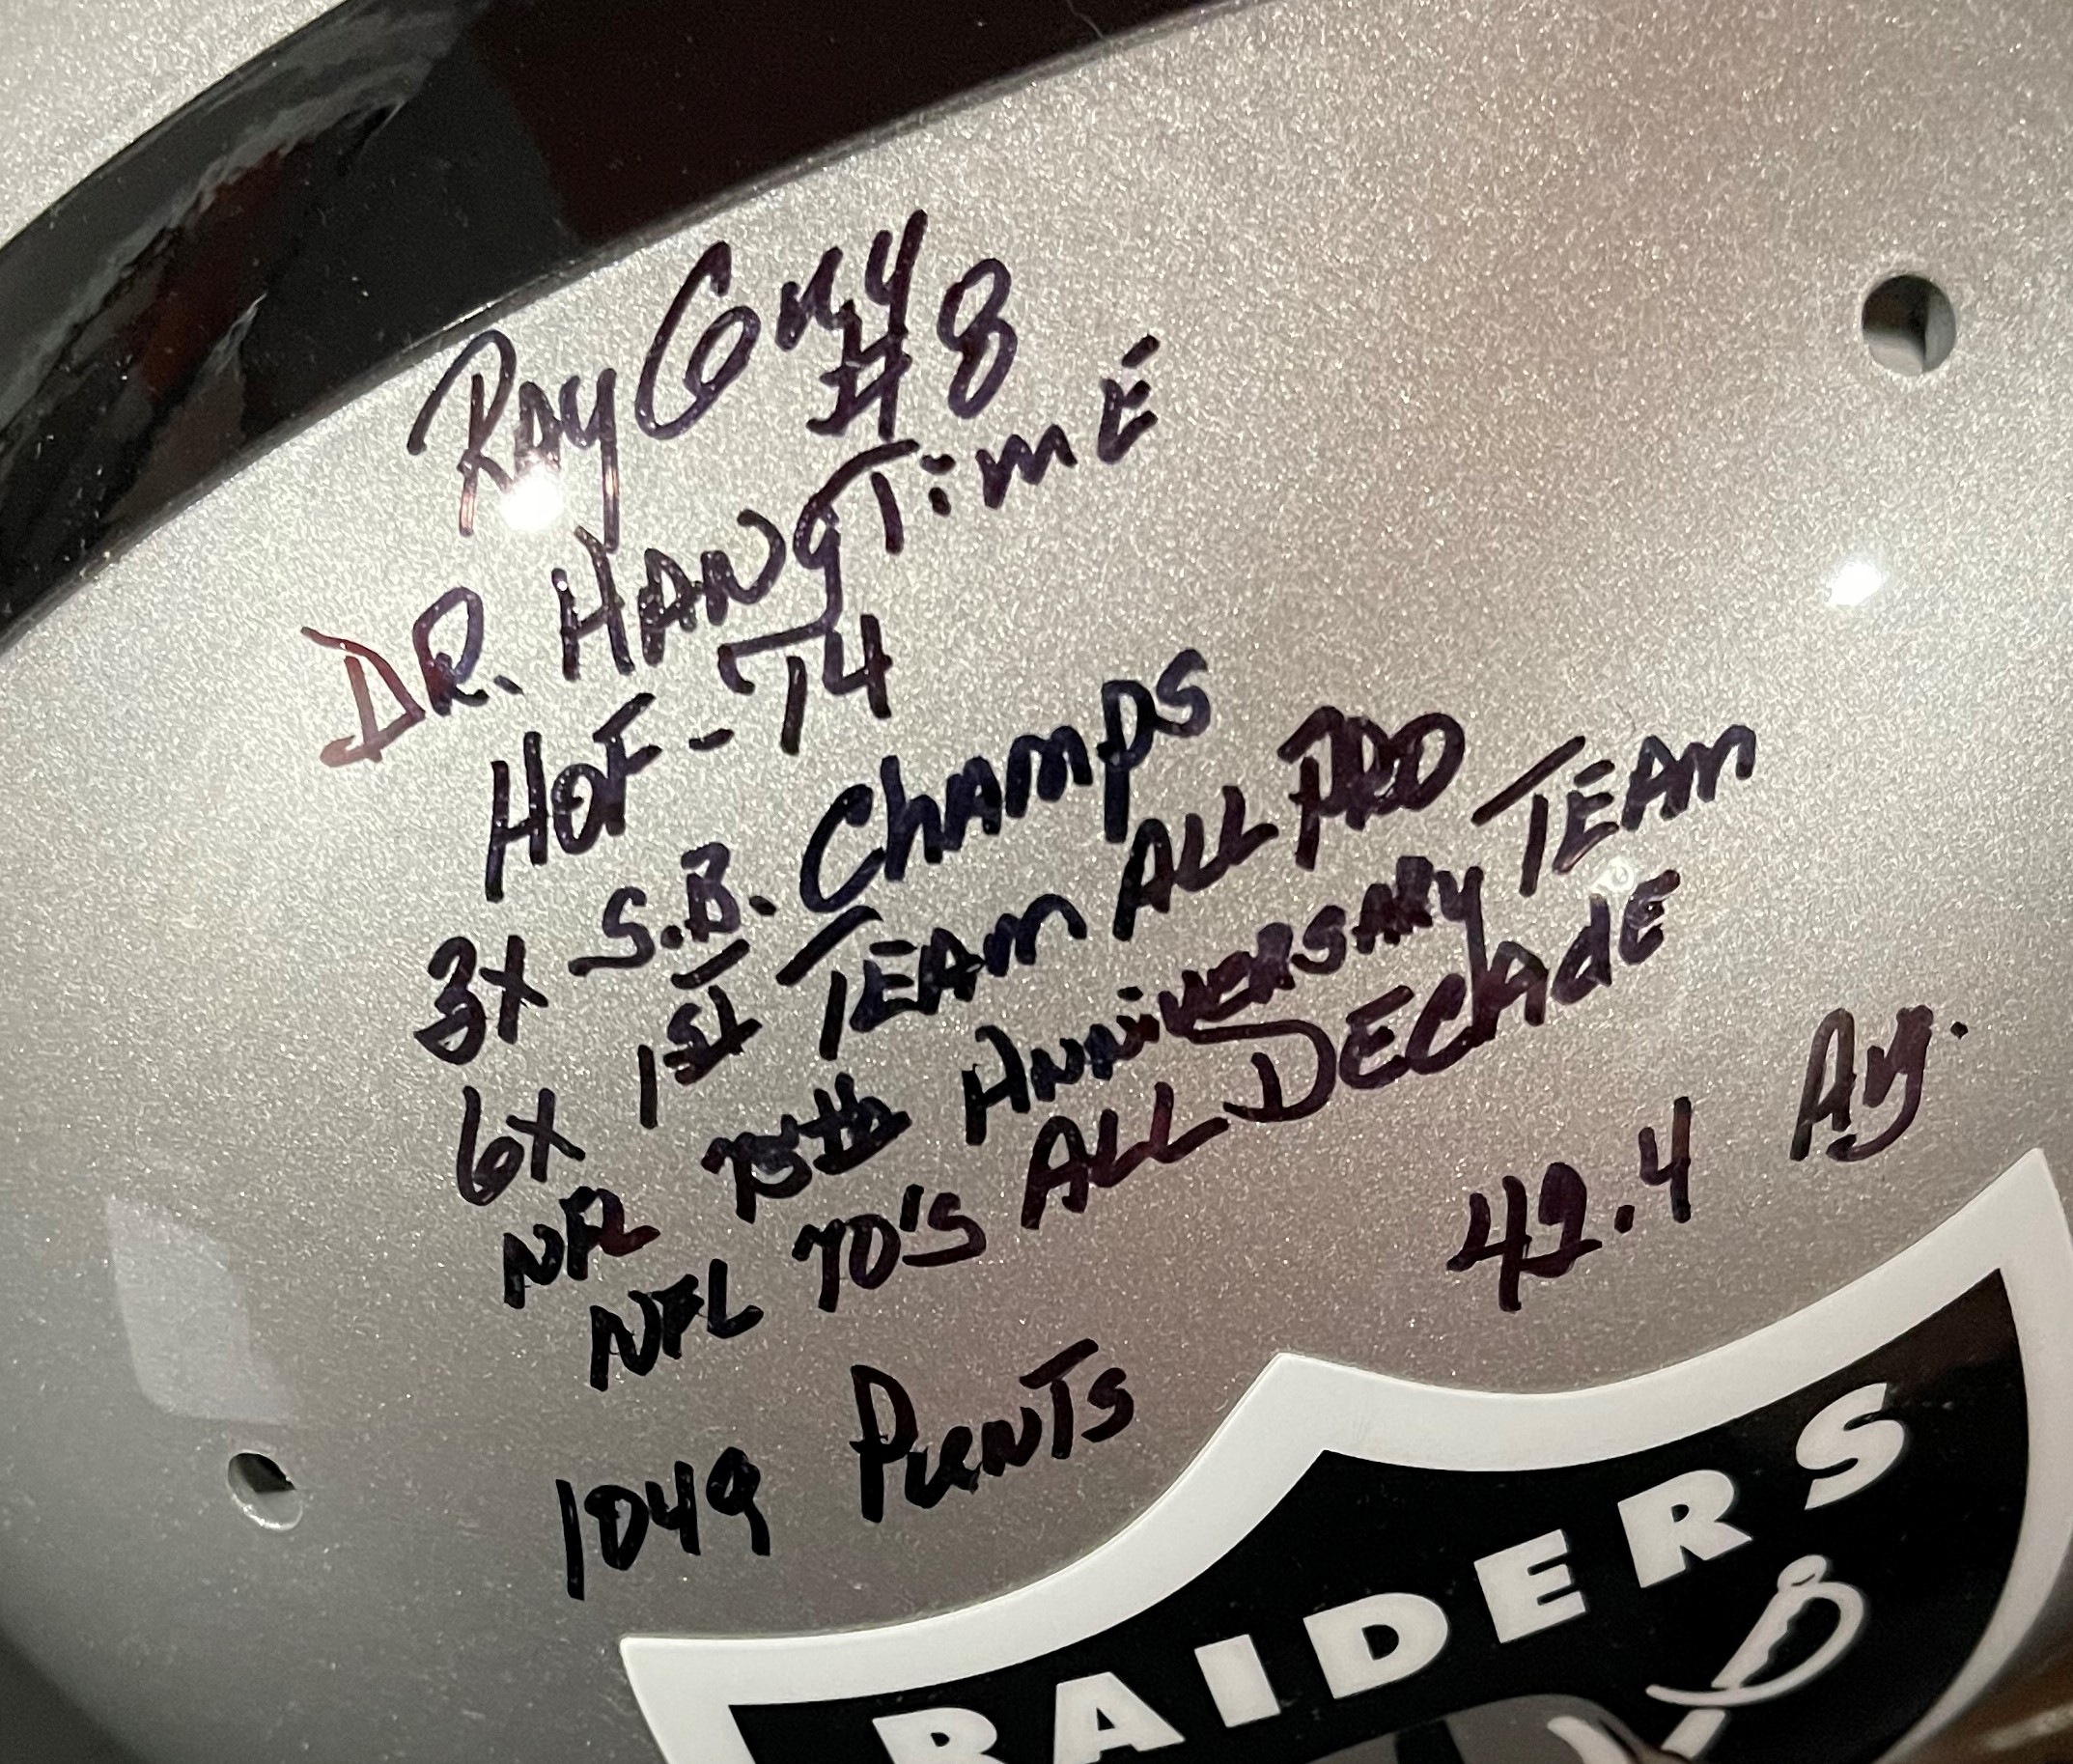 Ray Guy #8
DR. HANgTimE
HOF-14
3X S.B. ChAmps
6X 1st TEAm ALL PRO
NFL 75th AnniVERSARy TEAm
NFL 70's ALL DECAdE
1049 PunTs 42.4 Avg.
RAIDERS